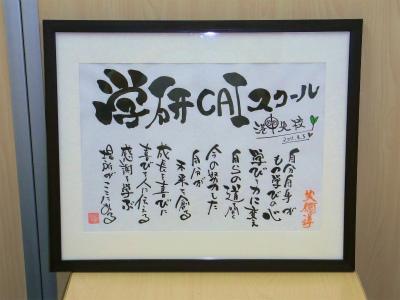 学研CAIスクール
港北校
自分自身が
もの学びの心
学び力に変え
自らの道開
今の努力した
自分が
未来を創る
成長を喜びに
喜びを人に伝える
感謝を学ぶ
場所がここにある